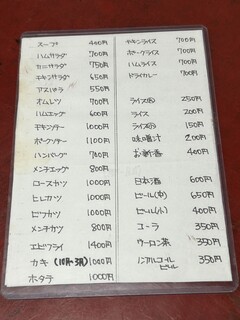 スープ 400円
ハムサラダ 700円
カニサラダ 750円
チキンサラダ 650円
アスパラ 550円
オムレツ 700円
ハムエッグ 600円
チキンソテー 1000円
ポークソテー 1100円
ハンバーグ 700円
メンチエッグ 800円
ロースカツ 1000円
ヒレカツ 1000円
ビフカツ 1000円
メンチカツ 800円
エビフライ 1400円
カキ (10月〜3月) 1000円
ホタテ 1000円
チキンライス 700円
ポークライス 700円
ハムライス 700円
ドライカレー 700円
ライス(大) 250円
ライス 200円
ライス(小) 150円
味噌汁 200円
お新香 400円
日本酒 600円
ビール(中) 650円
ビール(小) 400円
コーラ 350円
ウーロン茶 350円
ノンアルコール
ビール 350円